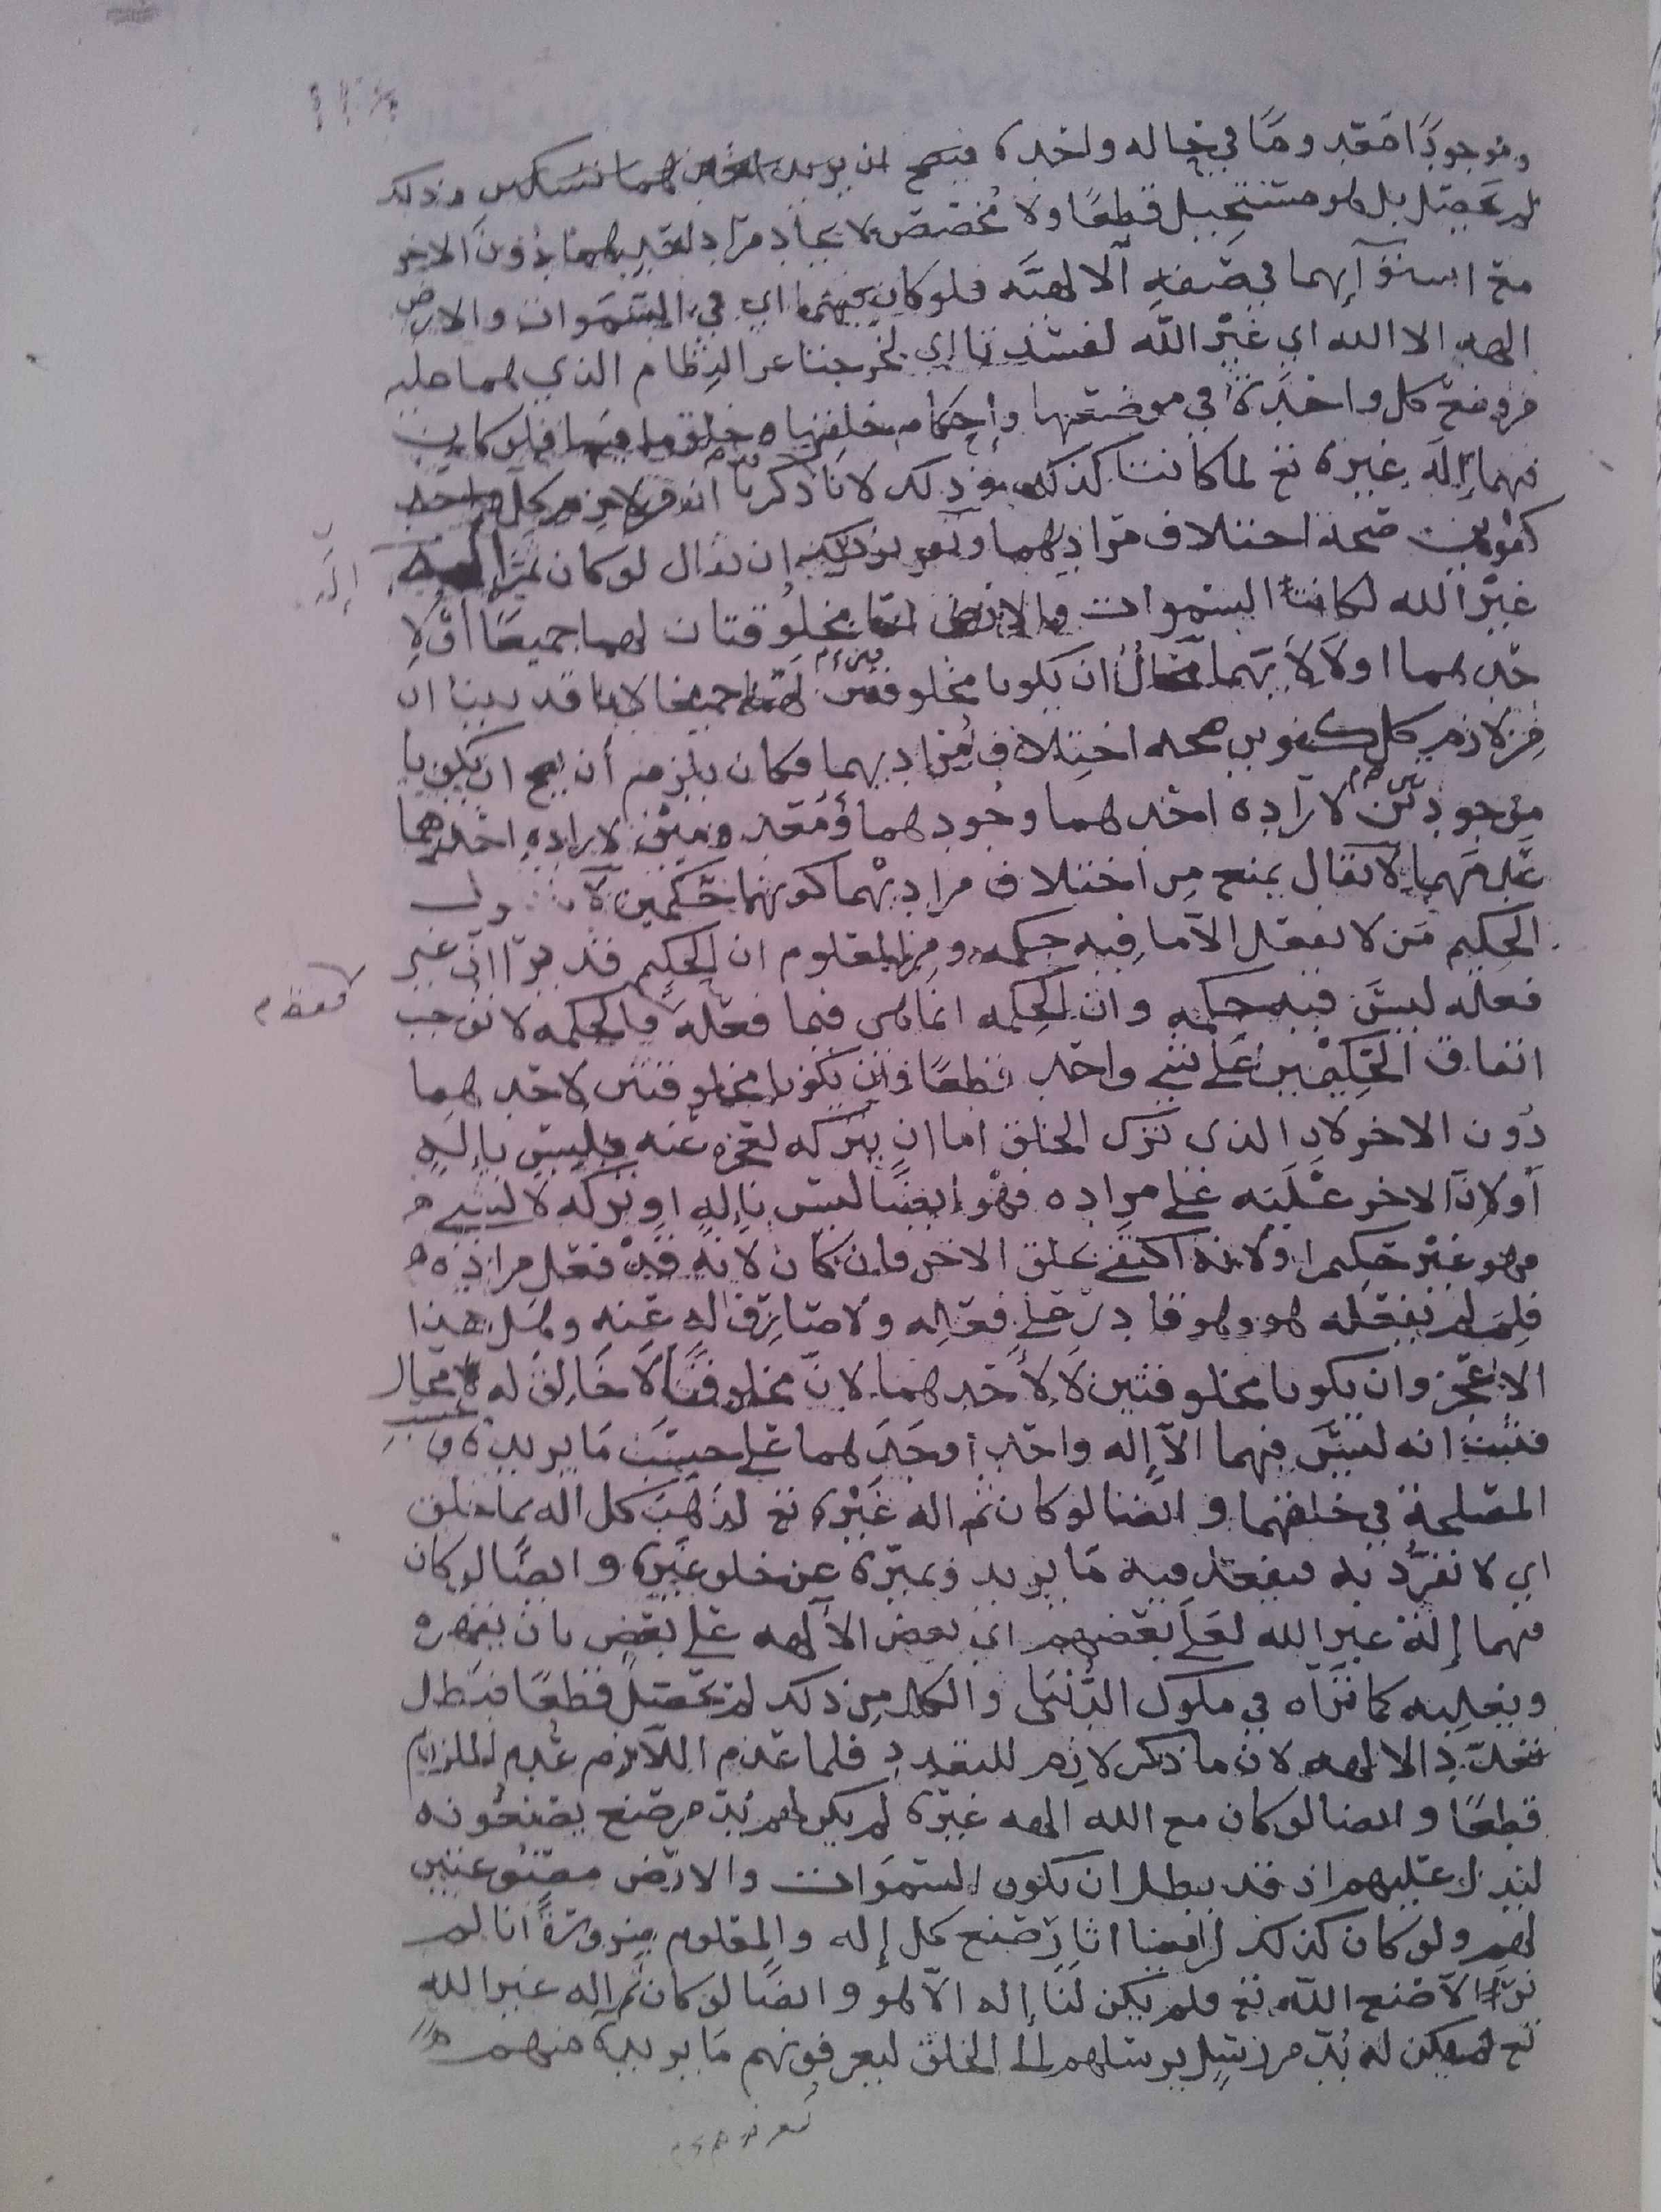 وموجودًا معدومًا في حاله واحده فيصح ان يريد لهما تسكين وذلك
لم يحصل بل هو مستحيل قطعًا ولا مخصص لايجاد مراد احديهما دون الاخر
مع استوآئهما في صفه الالهيَّه فلو كان فيهما اي في السَّموات والارض
الهه الا الله اي غير الله لفسدتا اي لخرجتا عن النِّظام الذي هما عليه
من وضع كل واحدة في موضعها وإحكام خلقها وخلق ما فيها فلو كان
فيهما إله غيره تع لما كانتا كذلك وذلك لانا ذكرنا ان من لازم كل
كفوين صحة اختلاف مراديهما وتقرير ذلك ان يقال لو كان ثم إله
غير الله لكانتا السموات والارض امّا مخلوقتان لهما جميعًا او لا
حدهما او لا لأيهما محال أن يكونا مخلوقتين لهما جميعا لانا قد بينا ان
من لازم كل كفوين صحه اختلاف مراديهما فكان يلزم أن يصح ان يكونا
موجودتين لارآده احدهما وجودهما ومعدومتين لاراده احدهما
عدمهما لا يقال يمنع من اختلاف مراديهما كونهما حكيمين لانا نقول
الحكيم من لا يفعل الّا ما فيه حكمه ومن المعلوم ان الحكيم قد يرا انّ غير
فعله ليس فيه حكمه وان الحكمه انما هي فيما فعله فالحكمه لا توجب
اتفاق الحكيمين على شيء واحد قطعًا وان يكونا مخلوقتين لاحدهما
دون الاخر لان الذي ترك الخلق اما ان يتركه لعجزه عنه فليس بإله
أو لانّ الاخر غلبه على مراده فهو ايضًا ليس بإله او تركه لا لشيء
فهو غير حكيم او لانه اكتفى بخلق الاخر فان كان لانه قد فعل مراده
فلم لم يفعله هو وهو قادر على فعله ولا صارف له عنه وهل هذا
الا عجز وان يكونا مخلوقتين لا لأحدهما لانّ مخلوقًا لا خالق له محال
فثبت انه ليس فيهما الّا إله واحد أوجدهما على حسب ما يريده و
المصلحة في خلقهما وايضًا لو كان ثم اله غيره تع لذهب كل اله بما خلق
اي لانفرد به فيفعل فيه ما يريد ويميزه عن خلق غيره وايضًا لو كان
فيهما إله غير الله لعلا بعضهم اي بعض الآلهه على بعض بان يقهره
ويغلبه كما نراه في ملوك الدُّنيا والكل من ذلك لم يحصل قطعًا فبطل
تعدّد الالهه لانّ ما ذكر لازم للتعدد فلما عدم اللّازم عدم الملزوم
قطعًا وايضا لو كان مع الله الهه غيره لم يكن لهم بُدّ من صنع يصنعونه
ليدل عليهم اذ قد بطل ان يكون السّموات والارض مصنوعتين
لهم ولو كان كذلك لراينا اثار صنع كل إله والمعلوم ضرورةً انا لم
نرَ الّا صنع الله تع فلم يكن لنا إله الّا هو وايضًا لو كان ثم اله غير الله
تع لم يكن له بُدّ من رسل يرسلهم الى الخلق ليعرفونهم ما يريده منهم